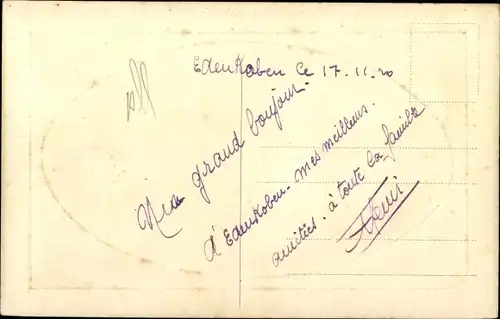 Edenkoben le 17.11.20
Un grand boujour.
d'Edenkoben. mes meilleurs.
amitiés. à toute la famille
Henri